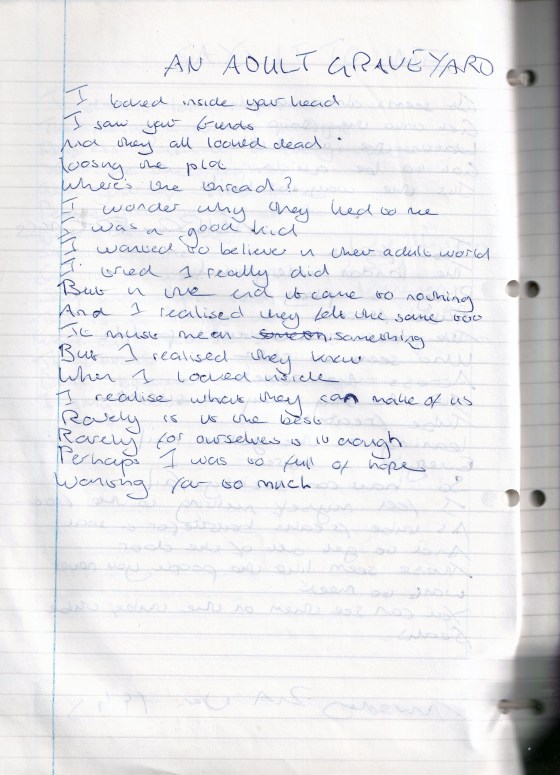 AN ADULT GRAVEYARD
I looked inside your head
I saw your friends
And they all looked dead.
loosing the plot
where's the thread?
I wonder why they lied to me
I was a good kid
I wanted to believe in their adult world
I tried I really did
But in the end it came to nothing
And I realised they felt the same too
It must mean something
But I realised they knew
When I looked inside
I realise what they can make of us
Rarely is it the best
Rarely for ourselves is it enough
Perhaps I was so full of hope
Wanting far too much